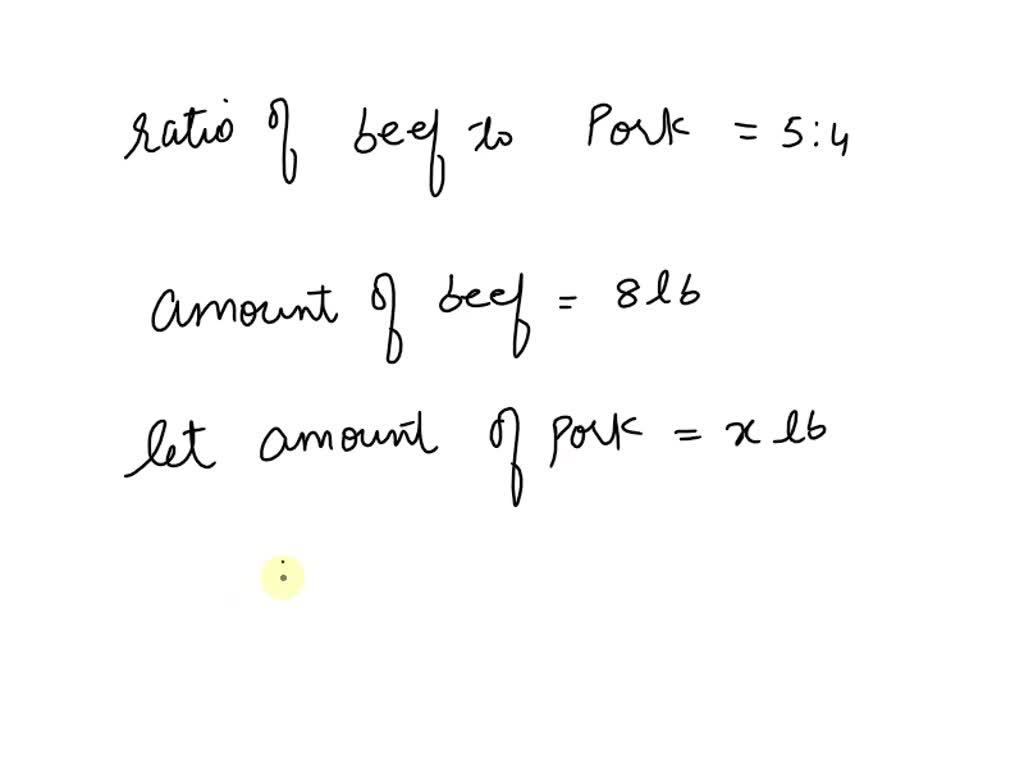 ratio of beef to Pork = 5:4
amount of beef = 8 lb
let amount of pork = x lb